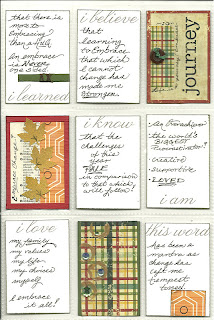 that there is
more to
embracing
than a hug.
An embrace
is NEVER
one sided
i learned
i believe
that
learning
to embrace
that which
I cannot
change has
made me
stronger
journey
i know
that the
challenges
of this
year
PALE
in comparison
to that which
will follow
the world's
BIGGEST
creative
supportive
LOVED
i am
i love
my family
my values
my life
my choices
myself
I embrace
it all!
this word
has been a
mantra as
change has
left me
tempest
tossed